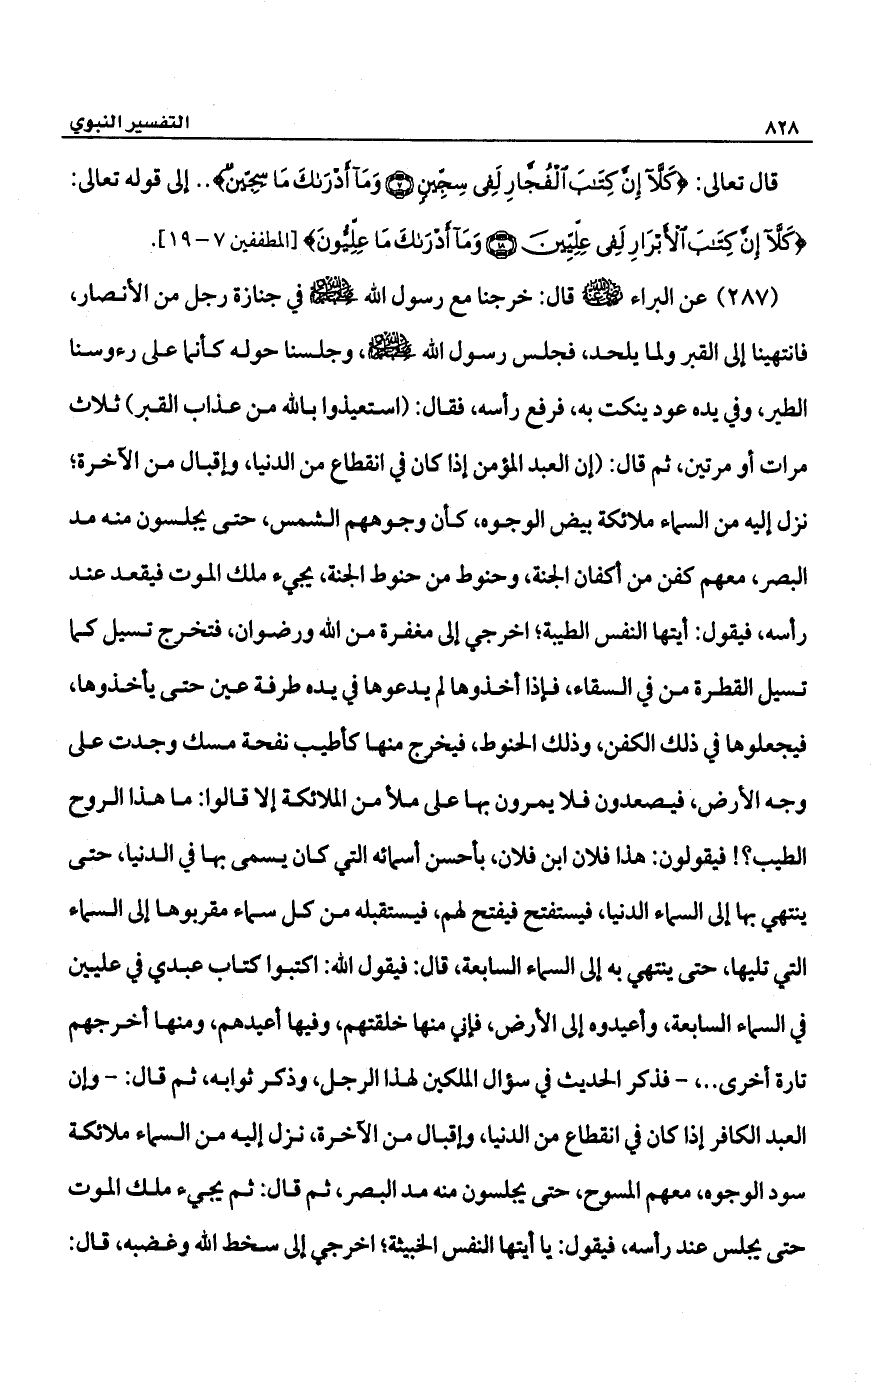 ٨٢٨ التفسير النبوي
قال تعالى: ﴿كَلَّآ إِنَّ كِتَٰبَ ٱلْفُجَّارِ لَفِى سِجِّينٍ ۝٧ وَمَآ أَدْرَىٰكَ مَا سِجِّينٌ﴾.. إلى قوله تعالى:
﴿كَلَّآ إِنَّ كِتَٰبَ ٱلْأَبْرَارِ لَفِى عِلِّيِّينَ ۝١٨ وَمَآ أَدْرَىٰكَ مَا عِلِّيُّونَ﴾ [المطففين ٧-١٩].
(٢٨٧) عن البراء رضي الله عنه قال: خرجنا مع رسول الله ﷺ في جنازة رجل من الأنصار،
فانتهينا إلى القبر ولما يلحد، فجلس رسول الله ﷺ، وجلسنا حوله كأنما على رءوسنا
الطير، وفي يده عود ينكت به، فرفع رأسه، فقال: (استعيذوا بالله من عذاب القبر) ثلاث
مرات أو مرتين، ثم قال: (إن العبد المؤمن إذا كان في انقطاع من الدنيا، وإقبال من الآخرة؛
نزل إليه من السماء ملائكة بيض الوجوه، كأن وجوههم الشمس، حتى يجلسون منه مد
البصر، معهم كفن من أكفان الجنة، وحنوط من حنوط الجنة، يجيء ملك الموت فيقعد عند
رأسه، فيقول: أيتها النفس الطيبة؛ اخرجي إلى مغفرة من الله ورضوان، فتخرج تسيل كما
تسيل القطرة من في السقاء، فإذا أخذوها لم يدعوها في يده طرفة عين حتى يأخذوها،
فيجعلوها في ذلك الكفن، وذلك الحنوط، فيخرج منها كأطيب نفحة مسك وجدت على
وجه الأرض، فيصعدون فلا يمرون بها على ملأ من الملائكة إلا قالوا: ما هذا الروح
الطيب؟! فيقولون: هذا فلان ابن فلان، بأحسن أسمائه التي كان يسمى بها في الدنيا، حتى
ينتهي بها إلى السماء الدنيا، فيستفتح فيفتح لهم، فيستقبله من كل سماء مقربوها إلى السماء
التي تليها، حتى ينتهي به إلى السماء السابعة، قال: فيقول الله: اكتبوا كتاب عبدي في عليين
في السماء السابعة، وأعيدوه إلى الأرض، فإني منها خلقتهم، وفيها أعيدهم، ومنها أخرجهم
تارة أخرى..، - فذكر الحديث في سؤال الملكين لهذا الرجل، وذكر ثوابه، ثم قال: - وإن
العبد الكافر إذا كان في انقطاع من الدنيا، وإقبال من الآخرة، نزل إليه من السماء ملائكة
سود الوجوه، معهم المسوح، حتى يجلسون منه مد البصر، ثم قال: ثم يجيء ملك الموت
حتى يجلس عند رأسه، فيقول: يا أيتها النفس الخبيثة؛ اخرجي إلى سخط الله وغضبه، قال: